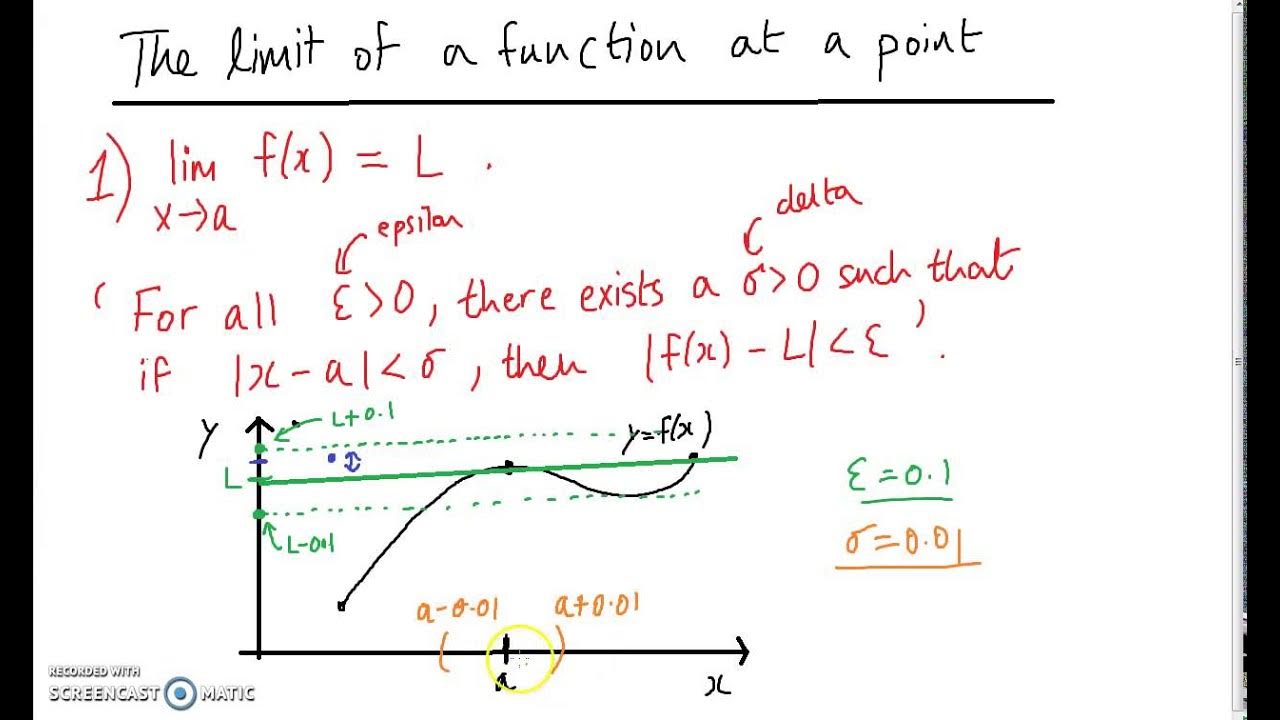 The limit of a function at a point
1) lim f(x) = L .
x→a
epsilon
delta
' For all ε>0, there exists a σ>0 such that
if |x-a|<σ, then |f(x)-L|<ε ' .
y
L+0.1
y=f(x)
L
L-0.1
ε=0.1
σ=0.01
a-0.01
a+0.01
a
x
RECORDED WITH
SCREENCAST MATIC